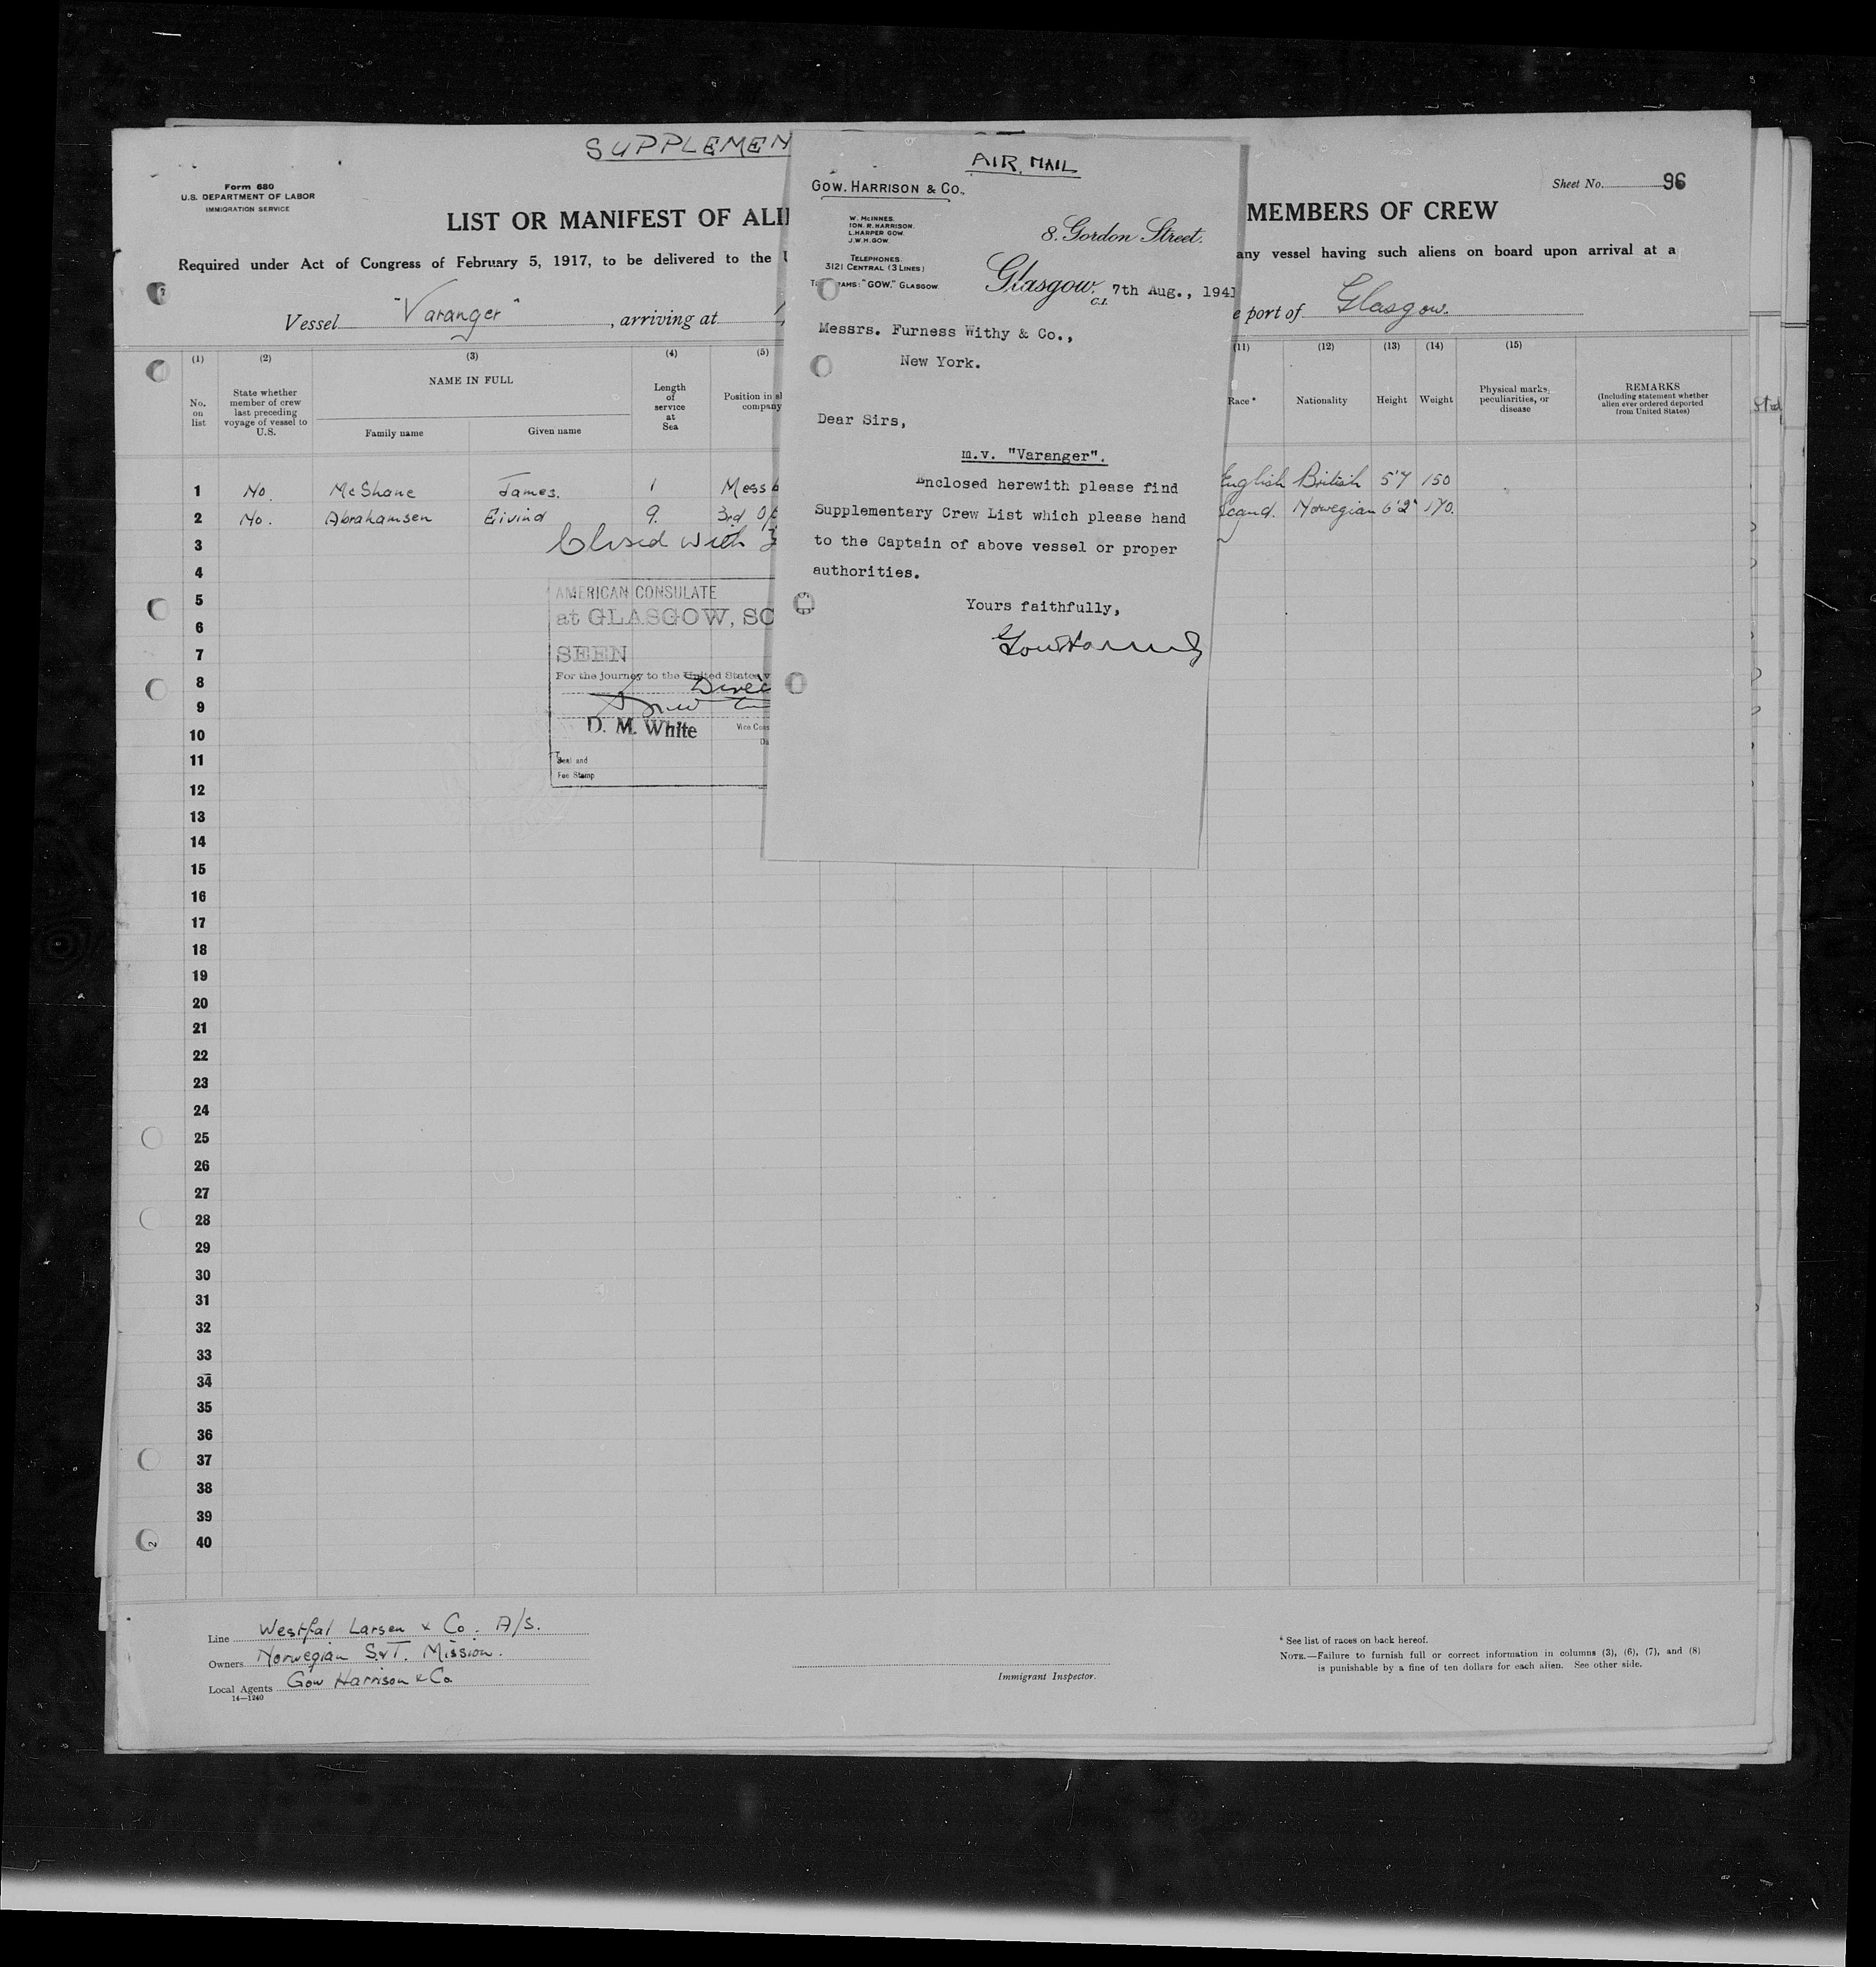 SUPPLEMEN
AIR MAIL
Form 680
U.S. DEPARTMENT OF LABOR
IMMIGRATION SERVICE
Sheet No. 96
LIST OR MANIFEST OF ALI
MEMBERS OF CREW
Required under Act of Congress of February 5, 1917, to be delivered to the
any vessel having such aliens on board upon arrival at a
Vessel "Varanger", arriving at
port of Glasgow.
GOW, HARRISON & CO.,
W. McINNES.
ION. R. HARRISON.
L. HARPER GOW.
J.W.H. GOW.
8. Gordon Street.
TELEPHONES
3121 CENTRAL (3 LINES)
AMS: "GOW." GLASGOW
Glasgow. C.1. 7th Aug., 1941
Messrs. Furness Withy & Co.,
New York.
Dear Sirs,
m.v. "Varanger".
Enclosed herewith please find
Supplementary Crew List which please hand
to the Captain of above vessel or proper
authorities.
Yours faithfully,
(1) (2) (3) (4) (5) (11) (12) (13) (14) (15)
No. on list
State whether member of crew last preceding voyage of vessel to U.S.
NAME IN FULL
Family name Given name
Length of service at Sea
Position in company
Race*
Nationality
Height
Weight
Physical marks, peculiarities, or disease
REMARKS
(Including statement whether alien ever ordered deported from United States)
1 No. McShane James. 1 Mess English British 5'7 150
2 No. Abrahamsen Eivind 9. 3rd Scand. Norwegian 6'2" 170.
3 Closed with
4
5
6
7
8
9
10
11
12
13
14
15
16
17
18
19
20
21
22
23
24
25
26
27
28
29
30
31
32
33
34
35
36
37
38
39
40
AMERICAN CONSULATE
at GLASGOW, SC
SEEN
For the journey to the United States
D. M. White
Vice Cons
Seal and
Fee Stamp
Line Westfal Larsen & Co. A/S.
Owners Norwegian S.&T. Mission.
Local Agents Gow Harrison & Co.
14—1240
Immigrant Inspector.
* See list of races on back hereof.
NOTE.—Failure to furnish full or correct information in columns (3), (6), (7), and (8)
is punishable by a fine of ten dollars for each alien. See other side.